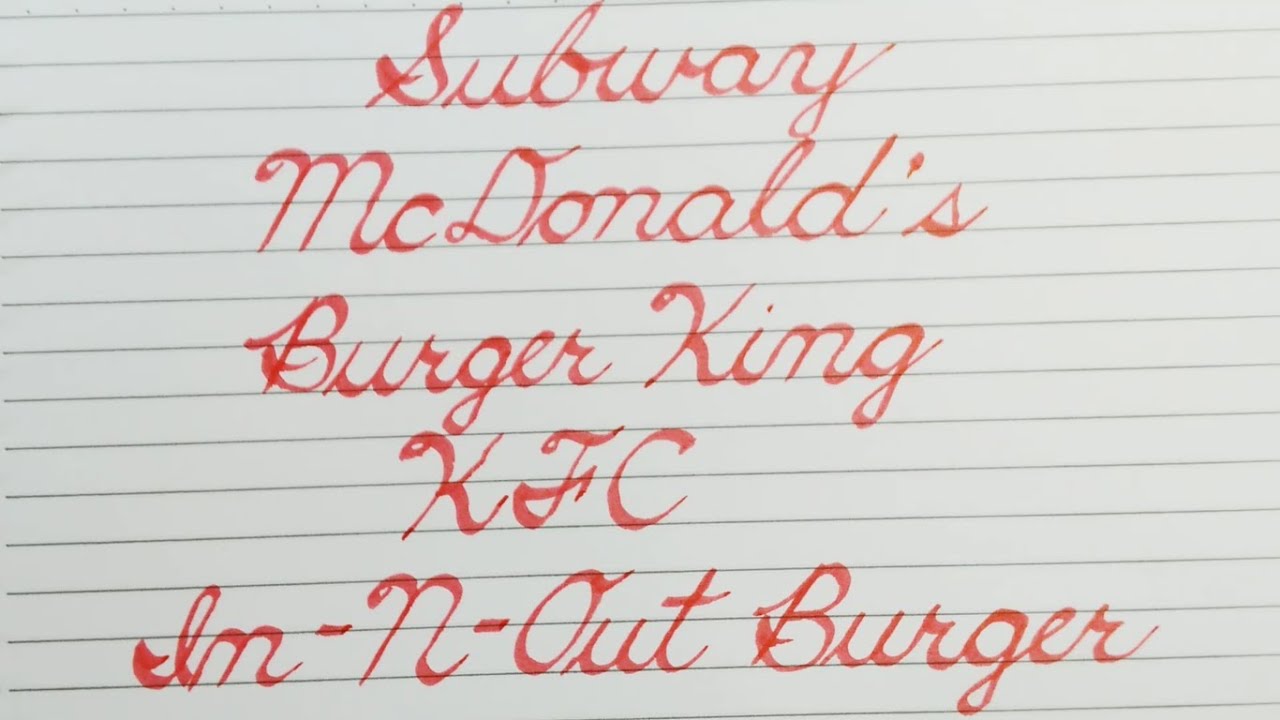 Subway
McDonald's
Burger King
KFC
In-N-Out Burger